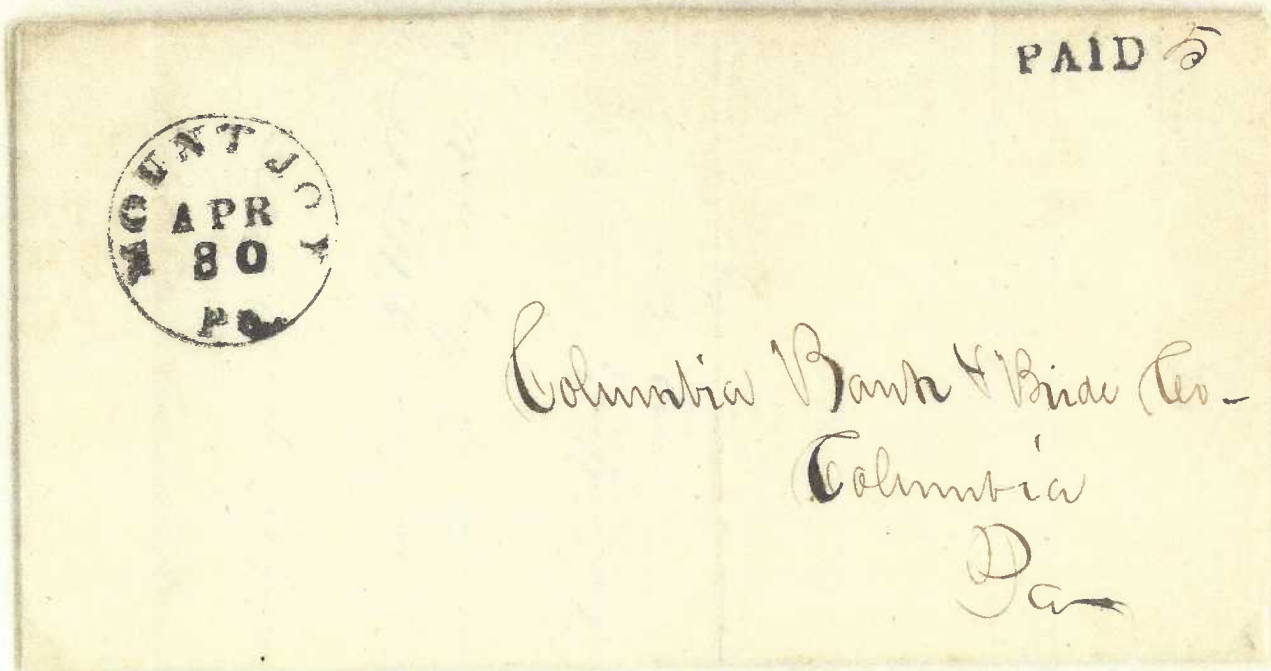 PAID 5
MOUNT JOY
APR
30
Pa.
Columbia Bank & Bride Co-
Columbia
Pa